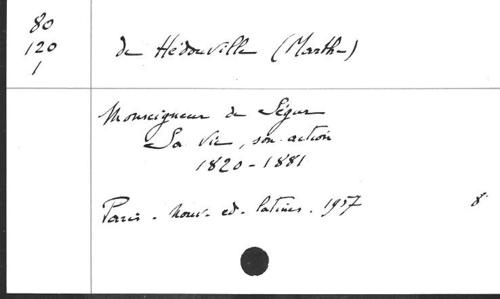 80
120
1
de Hédouville (Marthe)
Monseigneur de Ségur
Sa vie, son action
1820-1881
Paris - nouv. ed. latines. 1957 8°